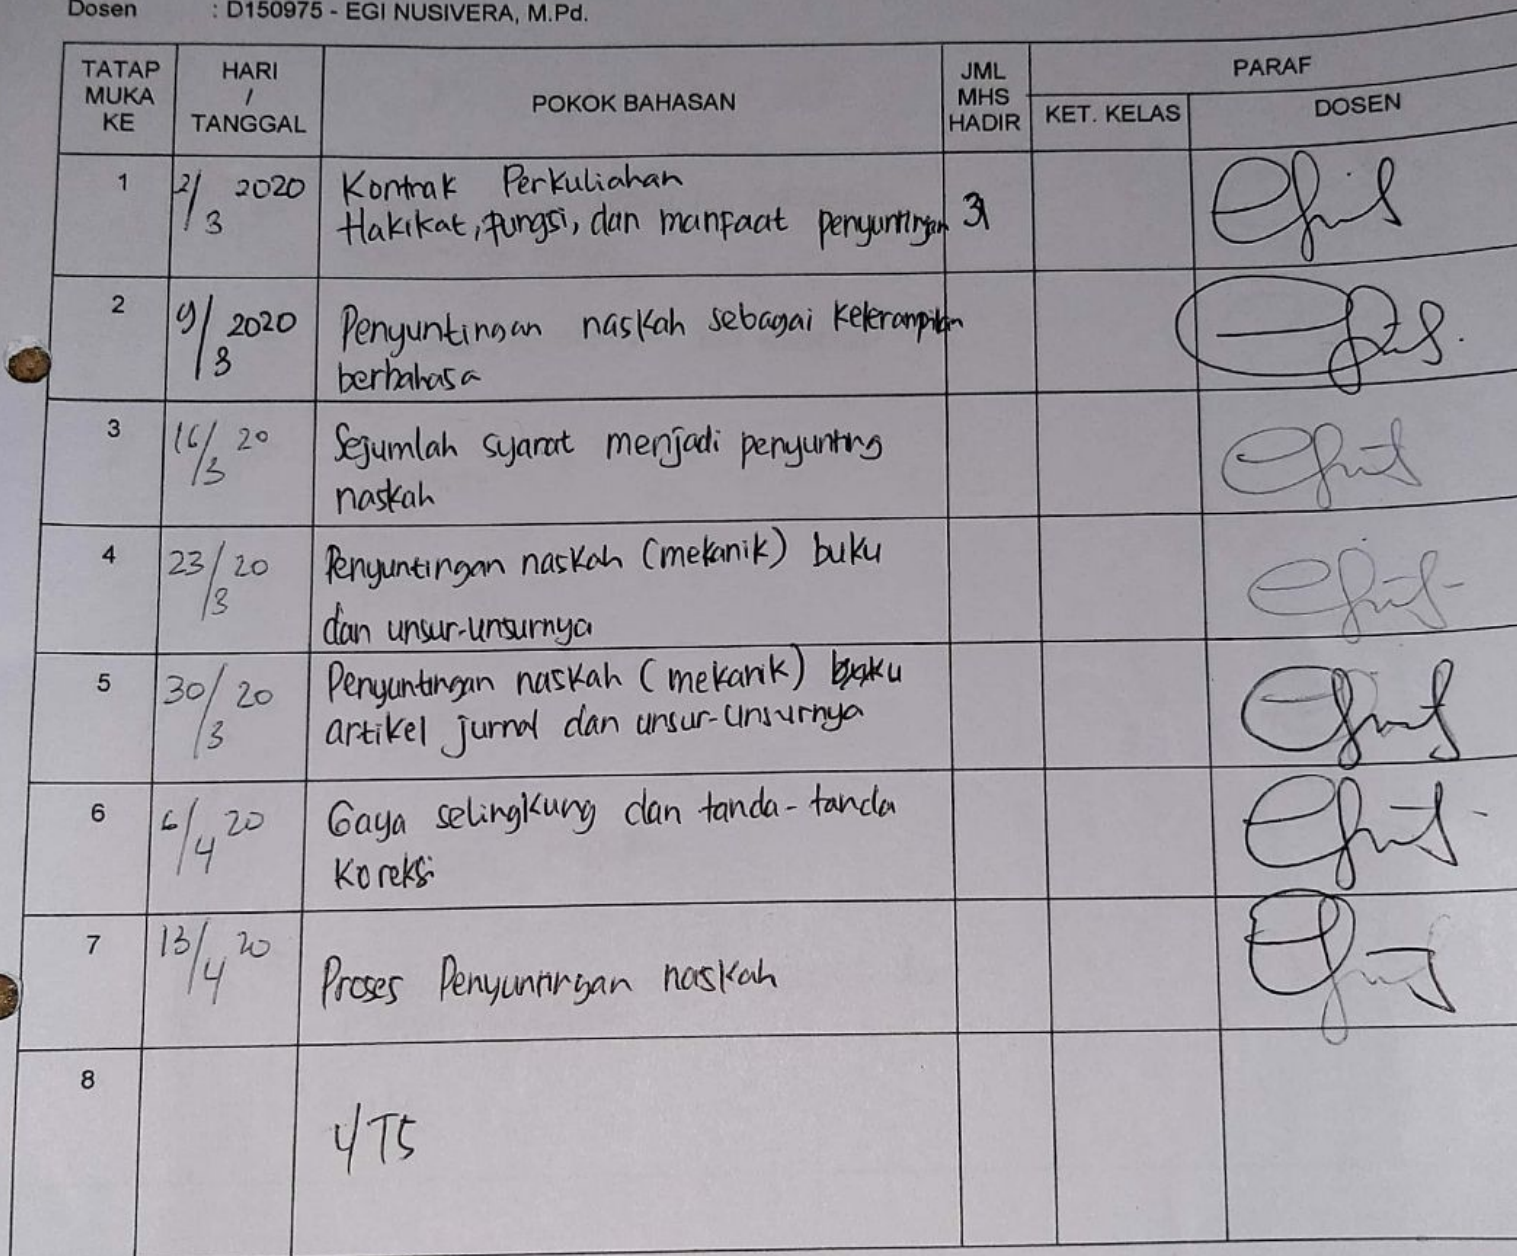 Dosen : D150975 - EGI NUSIVERA, M.Pd.
TATAP MUKA KE
HARI / TANGGAL
POKOK BAHASAN
JML MHS HADIR
PARAF
KET. KELAS
DOSEN
1 2/3 2020 Kontrak Perkuliahan
Hakikat, fungsi, dan manfaat penyuntingan 31
2 9/3 2020 Penyuntingan naskah sebagai keterampilan
berbahasa
3 16/3 20 Sejumlah syarat menjadi penyunting
naskah
4 23/3 20 Penyuntingan naskah (mekanik) buku
dan unsur-unsurnya
5 30/3 20 Penyuntingan naskah (mekanik) buku
artikel jurnal dan unsur-unsurnya
6 6/4 20 Gaya selingkung dan tanda-tanda
koreksi
7 13/4 20 Proses Penyuntingan naskah
8 UTS